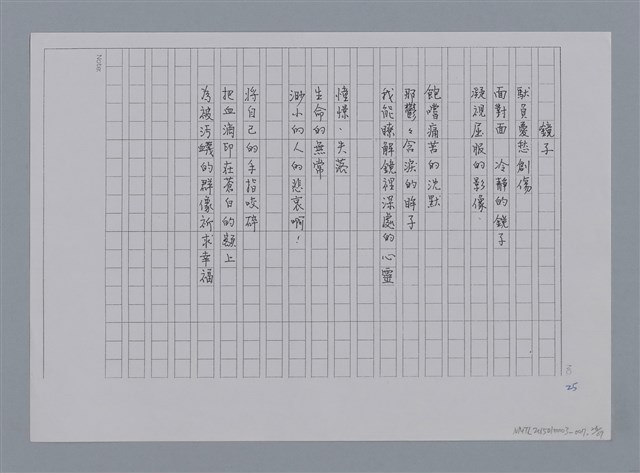 鏡子
馱負憂愁創傷
面對面 冷靜的鏡子
凝視屈服的影像．
飽嚐痛苦的沈默
那鬱々含淚的眸子
我能瞭解鏡裡深處的心靈
憧憬、失落
生命的無常
渺小的人的悲哀啊！
將自己的手指咬碎
把血滴印在蒼白的額上
為被污衊的群像祈求幸福
Note
25